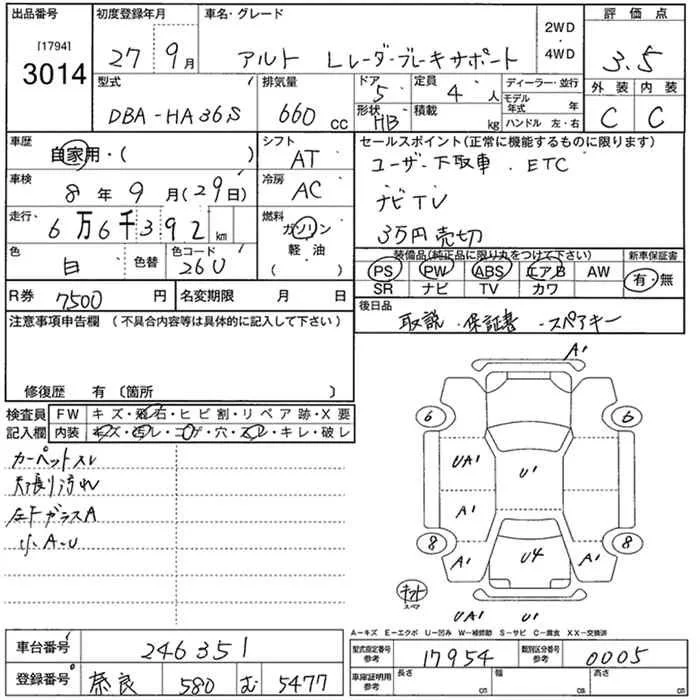 出品番号 初度登録年月 車名・グレード 評価点
[1794]
3014
27 9月 アルト Lレーダーブレーキサポート 2WD・4WD 3.5
型式 排気量 ドア 定員 ディーラー・並行 外装 内装
DBA-HA36S 660cc 5 4人 モデル年式 年 C C
形状 HB 積載 kg ハンドル 左・右
車歴 自家用・( ) シフト AT
セールスポイント(正常に機能するものに限ります)
ユーザー下取車 . ETC
車検 8年9月(29日) 冷房 AC
ナビTV
走行 6万6千392km 燃料 ガソリン 軽油 ( )
3万円売切
色 白 色替 色コード 26U
装備品(純正品に限り丸をつけて下さい) 新車保証書
PS PW ABS エアB AW 有・無
SR ナビ TV カワ
R券 7500円 名変期限 月 日
後日品
取説・保証書・スペアキー
注意事項申告欄 (不具合内容等は具体的に記入して下さい)
修復歴 有 〔箇所 〕
検査員記入欄
FW キズ・飛石・ヒビ割・リペア跡・X要
内装 キズ・汚レ・コゲ・穴・スレ・キレ・破レ
カーペットスレ
天張り汚れ
左下ガラスA
小A・U
A1
6 6
UA1 U1
A1
8 8
A1 U4 A1
スペア
UA1 U1
A-キズ E-エクボ U-凹み W-補修跡 S-サビ C-腐食 XX-交換済
車台番号 246351
型式指定番号 参考 17954 類別区分番号 参考 0005
登録番号 奈良 580 む 5477
車庫証明用 参考 長さ cm 幅 cm 高さ cm